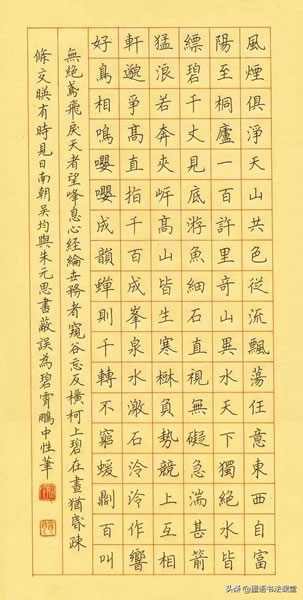 風煙俱淨天山共色從流飄蕩任意東西自富
陽至桐廬一百許里奇山異水天下獨絕水皆
縹碧千丈見底游魚細石直視無礙急湍甚箭
猛浪若奔夾㟁高山皆生寒樹負勢競上互相
軒邈爭高直指千百成峯泉水激石泠泠作響
好鳥相鳴嚶嚶成韻蟬則千轉不窮蝯𠟭百叫
無絕鳶飛戾天者望峰息心經綸世務者窺谷忘反橫柯上碧在晝猶昏疎
條交暎有時見日南朝吳均與朱元思書蔽誤為碧霄鵬中性筆
头条 @墨语书法课堂